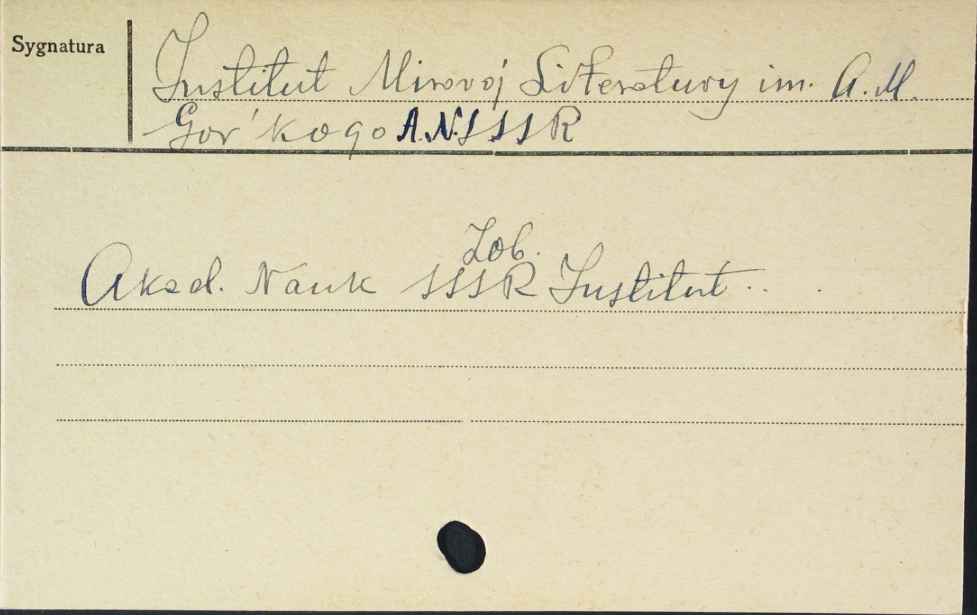 Sygnatura
Institut Mirovoj Literatury im. A.M.
Gor'kogo A.N.SSSR
Zob.
Akad. Nauk SSSR Institut...